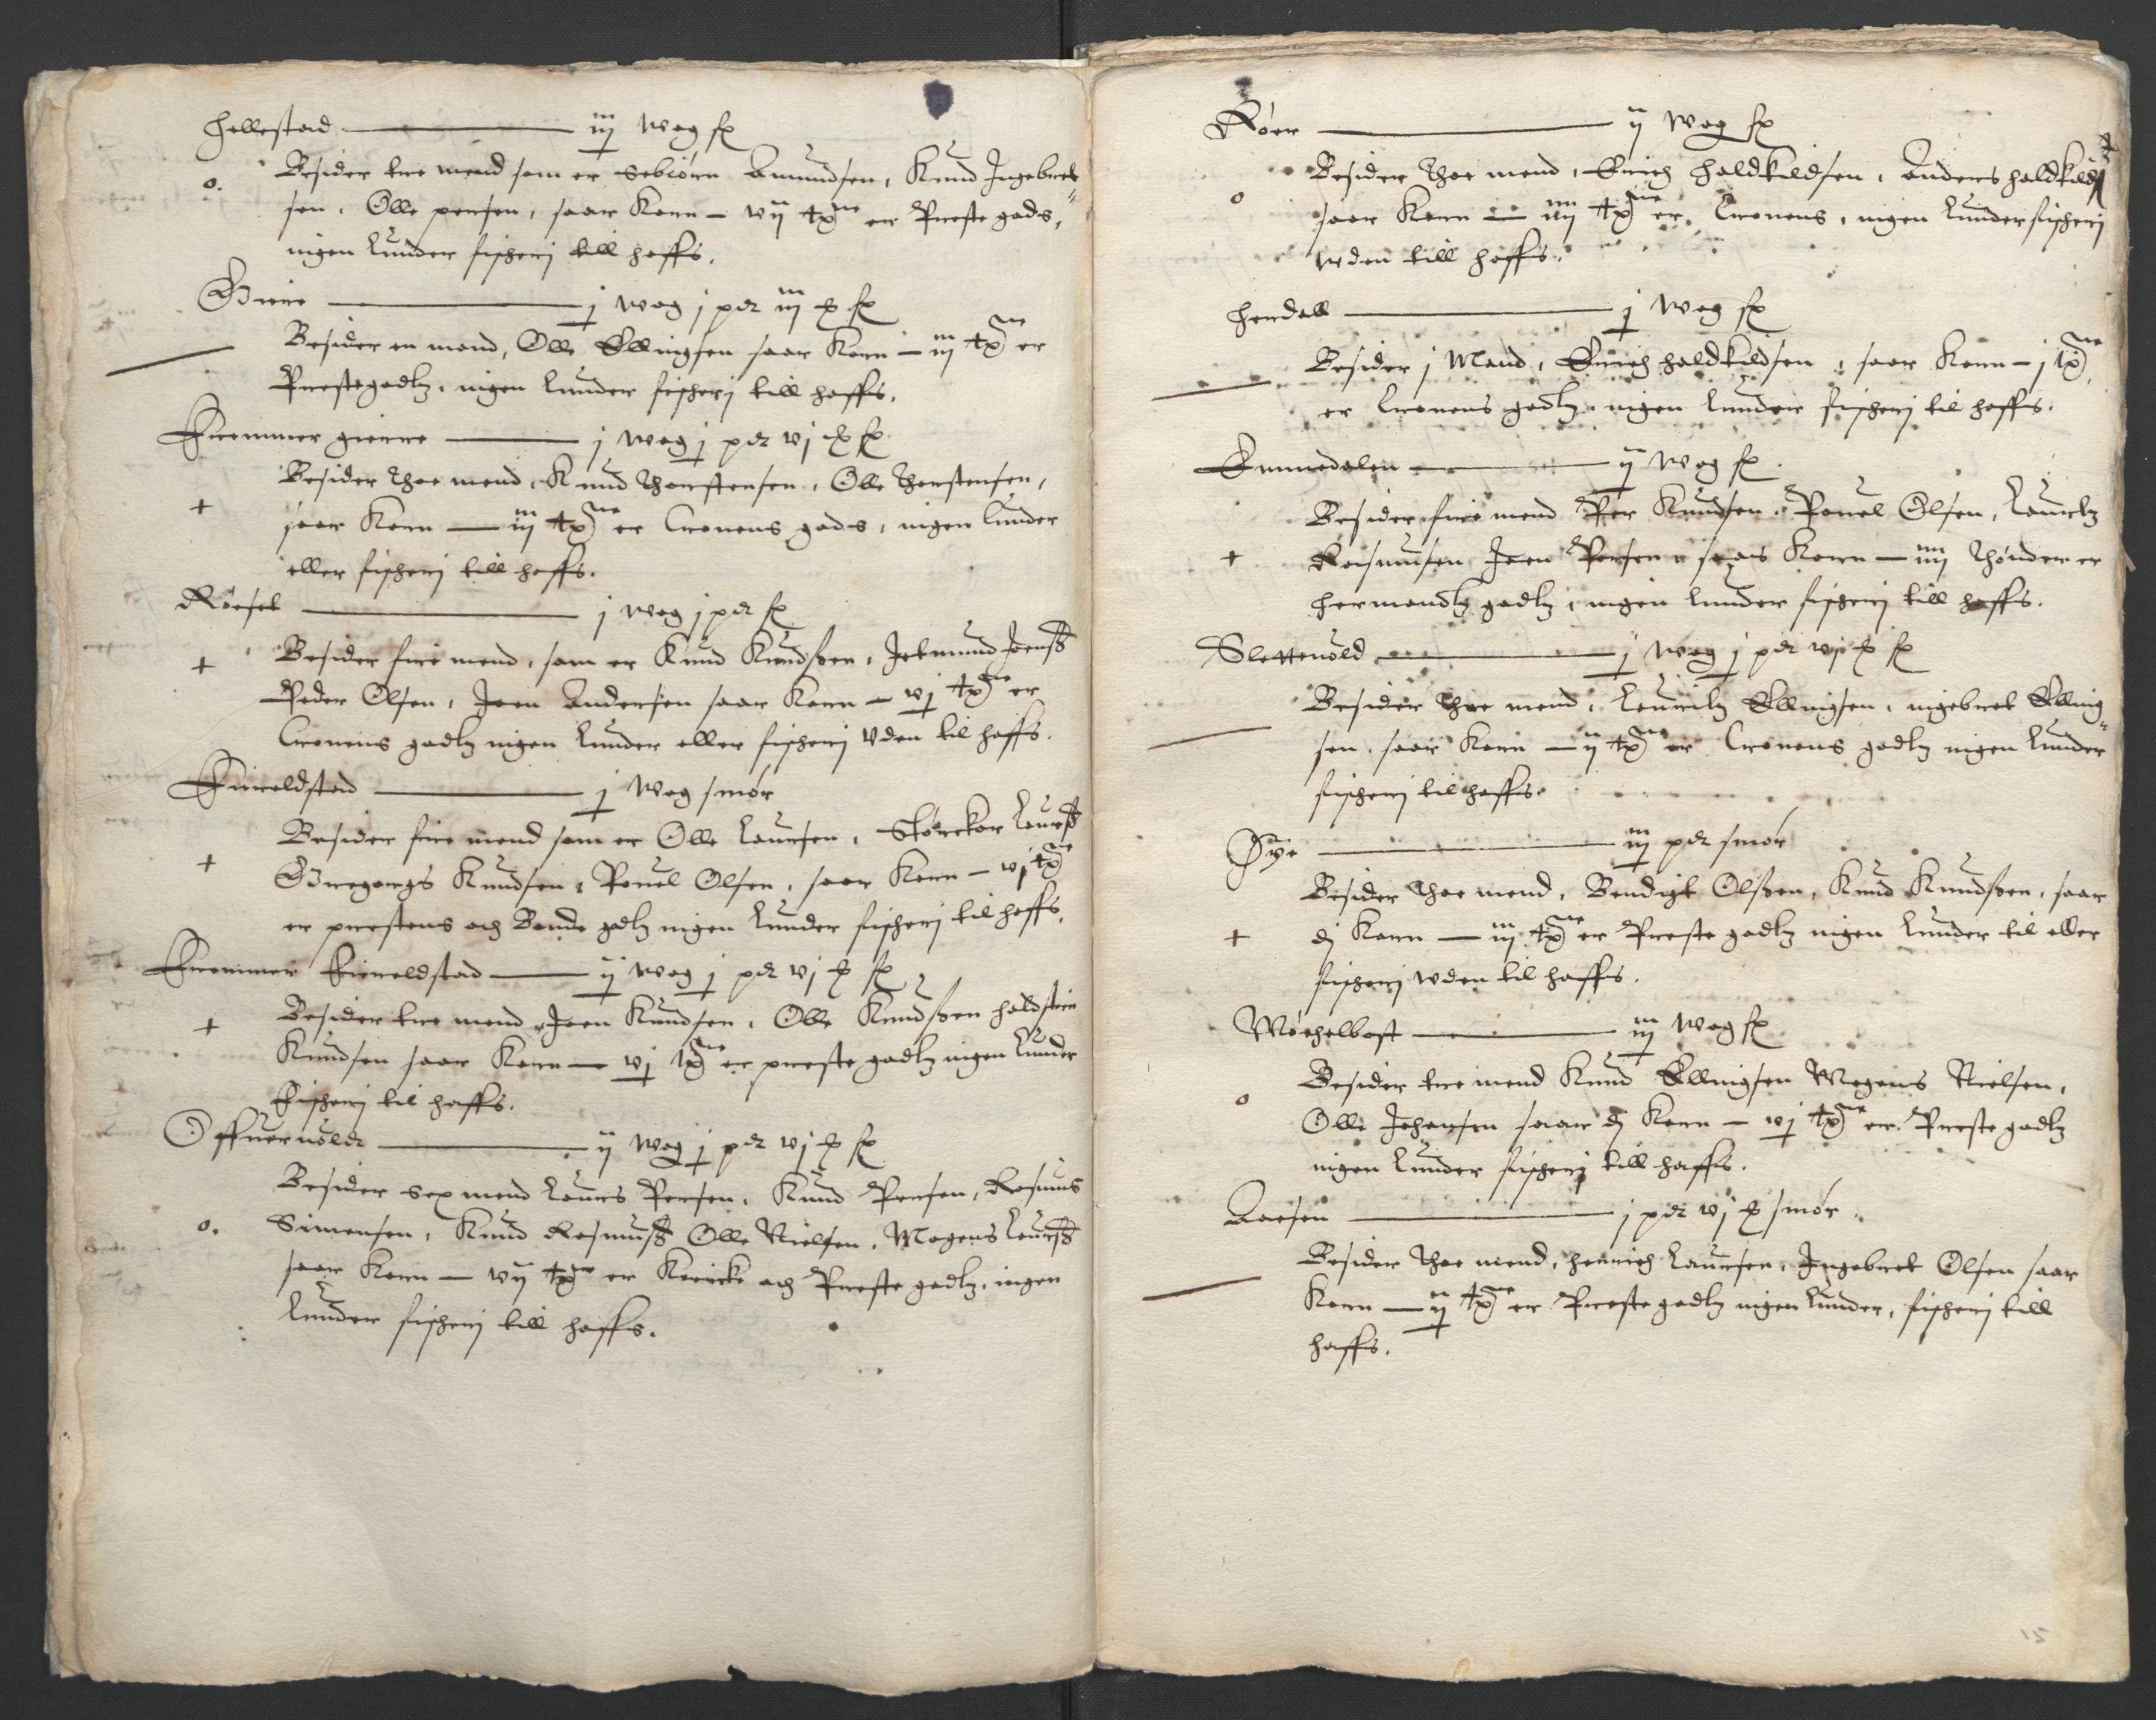 Hellestad — iij wog fx
o. Besider tre mend som er Sebiörn Amundsen, Knud Ingebret-
sen, Olle persen, saar Korn — vij tøner er Preste gods,
ingen lunder fischerj till haffs.
Giere — j wog j pdr iij fx
Besider en mand, Olle Ellingsen saar Korn — iij tøner er
Prestegodtz, ingen lunder fischerj till haffs.
Fremmer gierre — j wog j pdr vj fx
Besider thoe mend, Knud Thorstensen, Olle Thorstensen,
+ saar Korn — iij tøner er Cronens gods, ingen lunder
eller fischerj till haffs.
Röeset — j wog j pdr fx
+ Besider fire mend, som er Knud Knudssen, Jetmund Joenß
Peder Olsen, Joen Andersen saar Korn — vj tøner er
Cronens godtz ingen lunder eller fischerj vden til haffs.
Fiuelstad — j wog smör
Besider fire mend som er Olle Laursen, Störckor Laurß
+ Gregorgs Knudsen, Pouel Olsen, saar Korn — vj tøn
er prestens och Bonde godtz ingen lunder fischerj til haffs.
Fremmer Fiueldstad — ij wog j pdr vj fx
+ Besider tre mend, Joen Knudsen, Olle Knudssen Haldsten
Knudsen saar Korn — vj tøner er preste godtz ingen lunder
Fischerj til haffs.
Offueruold — ij wog j pdr vj fx
Besider sex mend Lauers Persen, Knud Persen, Rasmus
o. Simensen, Knud Rasmusß Olle Nielsen, Mogens Laurß
saar Korn — vij tøner er Kiercke och Preste godtz, ingen
lunder fischerj till haffs.
Röer — ij wog fx
Besider thoe mend, Erich Haldkildsen, Anders Haldkildß
o saar Korn — iiij tøner er Cronens, ingen lunder fischerj
vden till haffs.
Herdall — j wog fx
Besider j Mand, Erich Haldkildsen, saar Korn — j tøn
er Cronens godtz, ingen lunder fischerj til haffs.
Emmedalen — ij wog fx
Besider fire mend Per Knudsen, Pouel Olsen, Lauritz
+ Rasmusen Joen Persen, saar Korn — iiij thönder er
Hermandtz godtz, ingen lunder fischerj till haffs.
Slettevold — j wog j pdr vj fx
Besider thoe mend, Lauritz Ellingsen, ingebret Elling-
sen, saar Korn — ij tøner er Cronens godtz ingen lunder
fischerj til haffs.
Öye — iij pdr smör
Besider thoe mend, Bendigt Olssen, Knud Knudssen, saar
+ dj Korn — iij tøner er Preste godtz ingen lunder til eller
fischerj vden til haffs.
Möchelbost — iij wog fx
Besider tre mend Knud Ellingsen Mogens Nielsen,
o Olle Johansen saar dj Korn — vj tøner er Preste godtz
ingen lunder fischerj till haffs.
Aarsen — j pdr vj smör
Besider thoe mend, Henrich Laursen, Ingebret Olsen saar
Korn — ij tøner er Preste godtz ingen lunder, fischerj till
haffs.